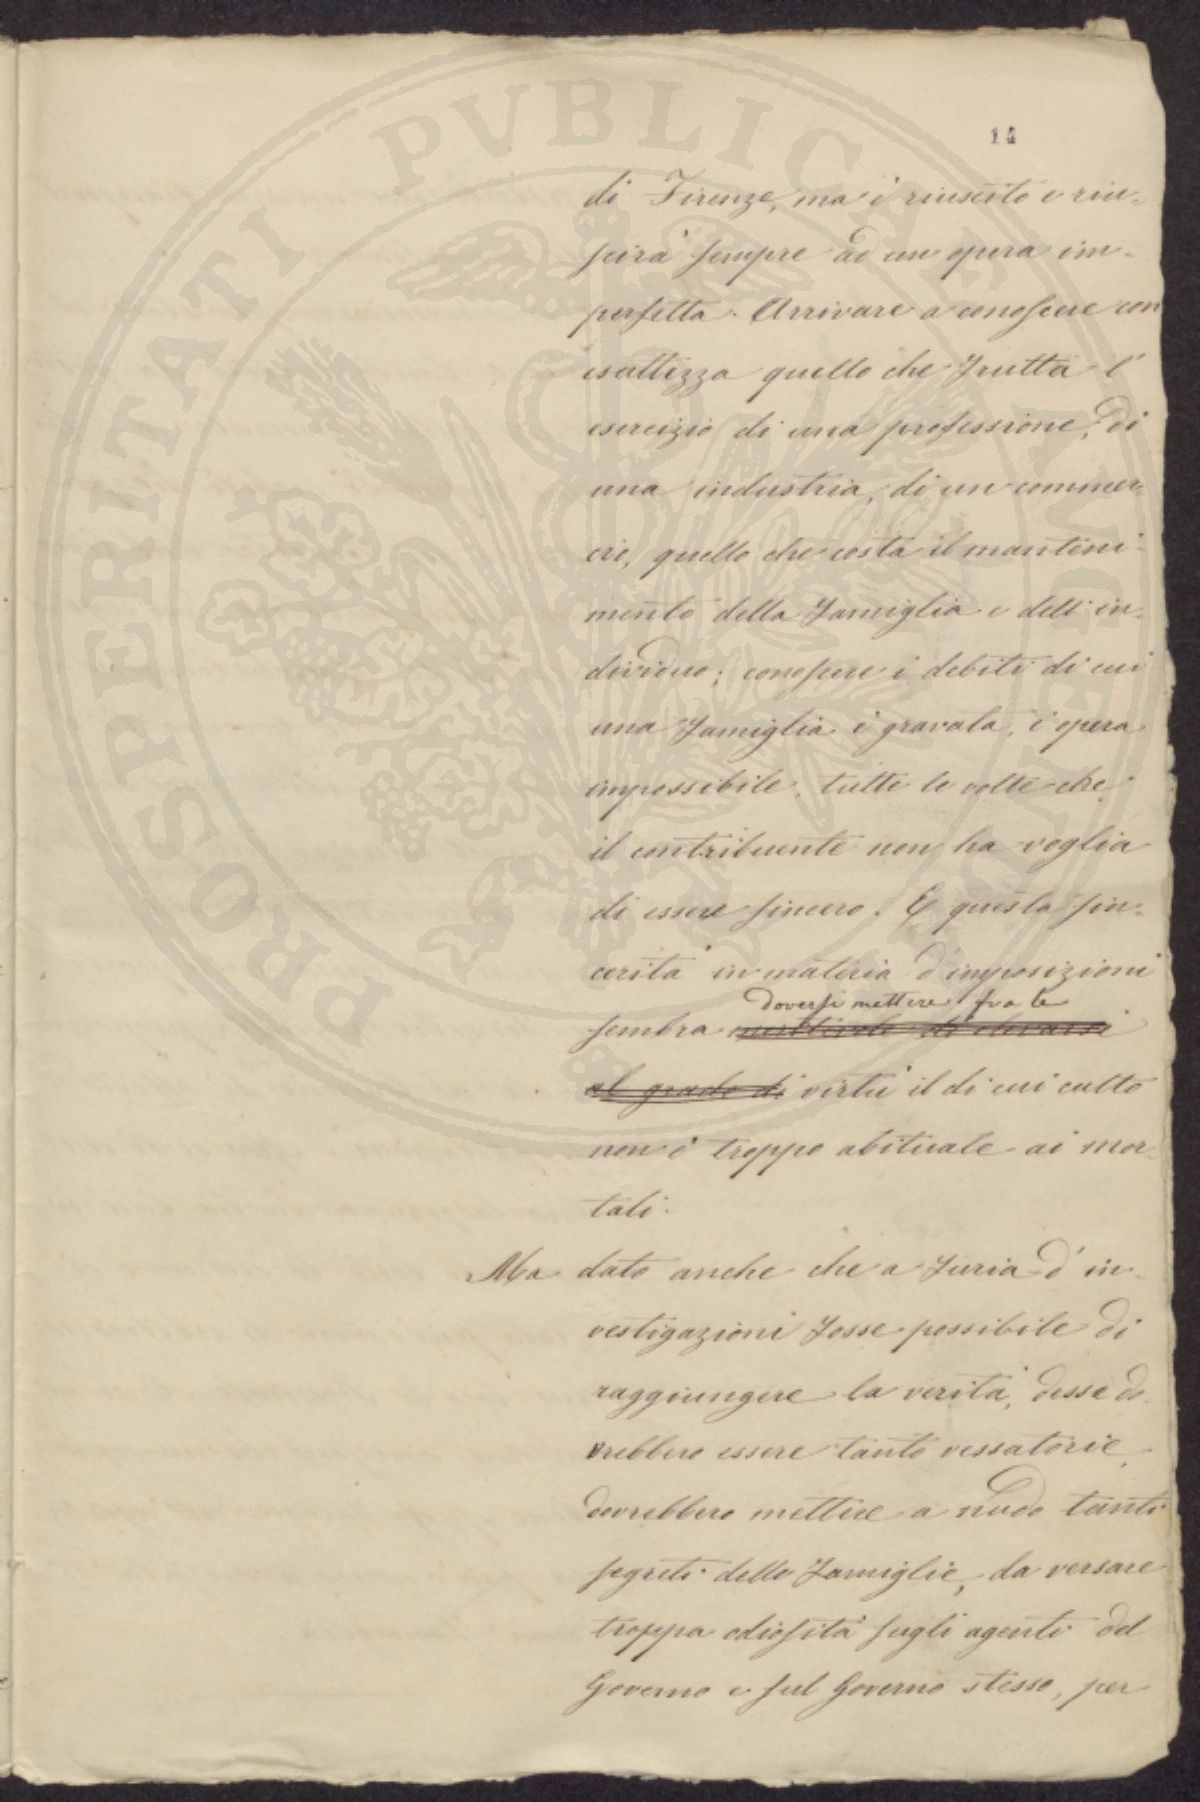 PROSPERITATI PVBLICAE
14
di Firenze, ma è riuscito e riu-
scirà sempre ad un opera im-
perfetta. Arrivare a conoscere con
esattezza quello che frutta l'
esercizio di una professione, di
una industria, di un commer-
cio, quello che costa il manteni-
mento della famiglia e dell'in-
dividuo; conoscere i debiti di cui
una famiglia è gravata, è opera
impossibile, tutte le volte che
il contribuente non ha voglia
di essere sincero. E questa sin-
cerità in materia d'imposizioni
doversi mettere fra le
sembra di elevarsi
al grado di virtù il di cui culto
non è troppo abituale ai mor-
tali.
Ma dato anche che a furia d'in-
vestigazioni fosse possibile di
raggiungere la verità, desse do-
vrebbero essere tanto vessatorie,
dovrebbero mettere a nudo tanti
segreti delle famiglie, da versare
troppa odiosità sugli agenti del
Governo e sul Governo stesso, per